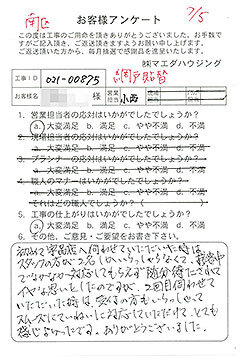 南区
7/5
お客様アンケート
この度は工事のご用命を頂きありがとうございました。お手数で
すがご記入頂き、ご返送頂きますようお願い申し上げます。
ご返送頂いた方から、毎月抽選で感謝品を進呈いたします。
㈱マエダハウジング
工事ID 021-00875 網戸貼替
お客様名 様 営業担当 小西
1. 営業担当者の応対はいかがでしたでしょうか?
a. 大変満足 b. 満足 c. やや不満 d. 不満
2. 現場担当者の応対はいかがでしたでしょうか?
a. 大変満足 b. 満足 c. やや不満 d. 不満
3. プランナーの応対はいかがでしたでしょうか?
a. 大変満足 b. 満足 c. やや不満 d. 不満
4. 職人のマナーはいかがでしたでしょうか?
a. 大変満足 b. 満足 c. やや不満 d. 不満
それはどの職人でしょうか?( )
5. 工事の仕上がりはいかがでしたでしょうか?
a. 大変満足 b. 満足 c. やや不満 d. 不満
6. その他、ご意見・ご要望をお書き下さい。
初めて宇品店へ伺わせていただいた時は、
スタッフの方が2名しかいらっしゃらなくて、接客中
でなかなか対応してもらえず随分待たされて
イヤな思いをしたのですが、2回目伺わせて
いただいた時は、受付の方もいらっしゃって
スムーズにていねいに対応していただけて、とても
感じよかったです。ありがとうございました。